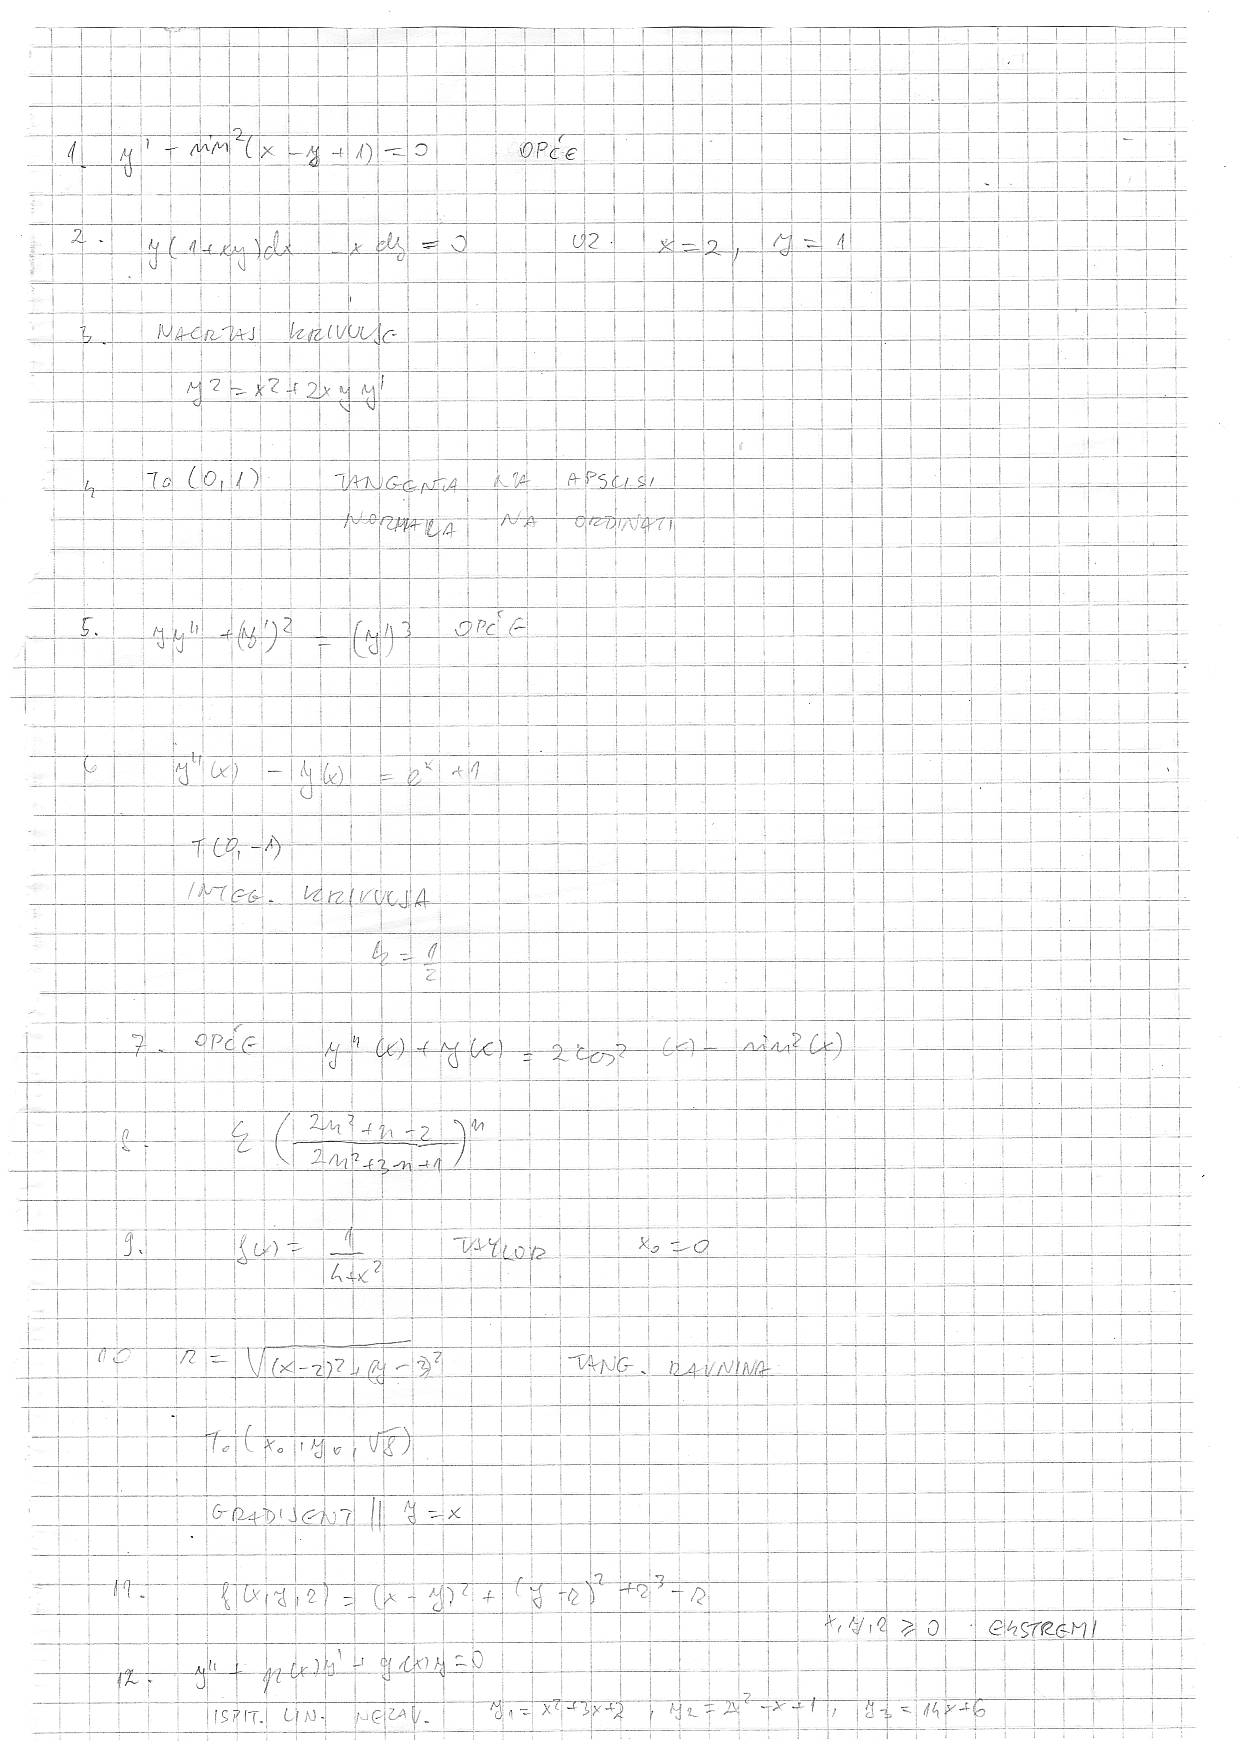 1. y' - sin²(x - y + 1) = 0 OPĆE
2. y(1+xy)dx - x dy = 0 UZ. x = 2, y = 1
3. NACRTAJ KRIVULJE
y² = x² + 2xyy'
4 T₀ (0,1) TANGENTA NA APSCISI
NORMALA NA ORDINATI
5. yy'' + (y')² = (y')³ OPĆE
6 y''(x) - y(x) = eˣ + 1
T(0, -1)
INTEG. KRIVULJA
k = 1/2
7. OPĆE y''(x) + y(x) = 2cos²(x) - sin²(x)
8. Σ ((2n²+n-2)/(2n²+3n+1))ⁿ
9. f(x) = 1/(4+x²) TAYLOR x₀ = 0
10 z = √((x-2)²+(y-3)²) TANG. RAVNINA
T₀ (x₀, y₀, √8)
GRADIJENT || y = x
11. f(x,y,z) = (x-y)² + (y-z)² + z³ - z
x,y,z ≥ 0 EKSTREMI
12. y'' + p(x)y' + q(x)y = 0
ISPIT. LIN. NEZAV. y₁ = x²+3x+2, y₂ = 2x²-x+1, y₃ = 14x+6